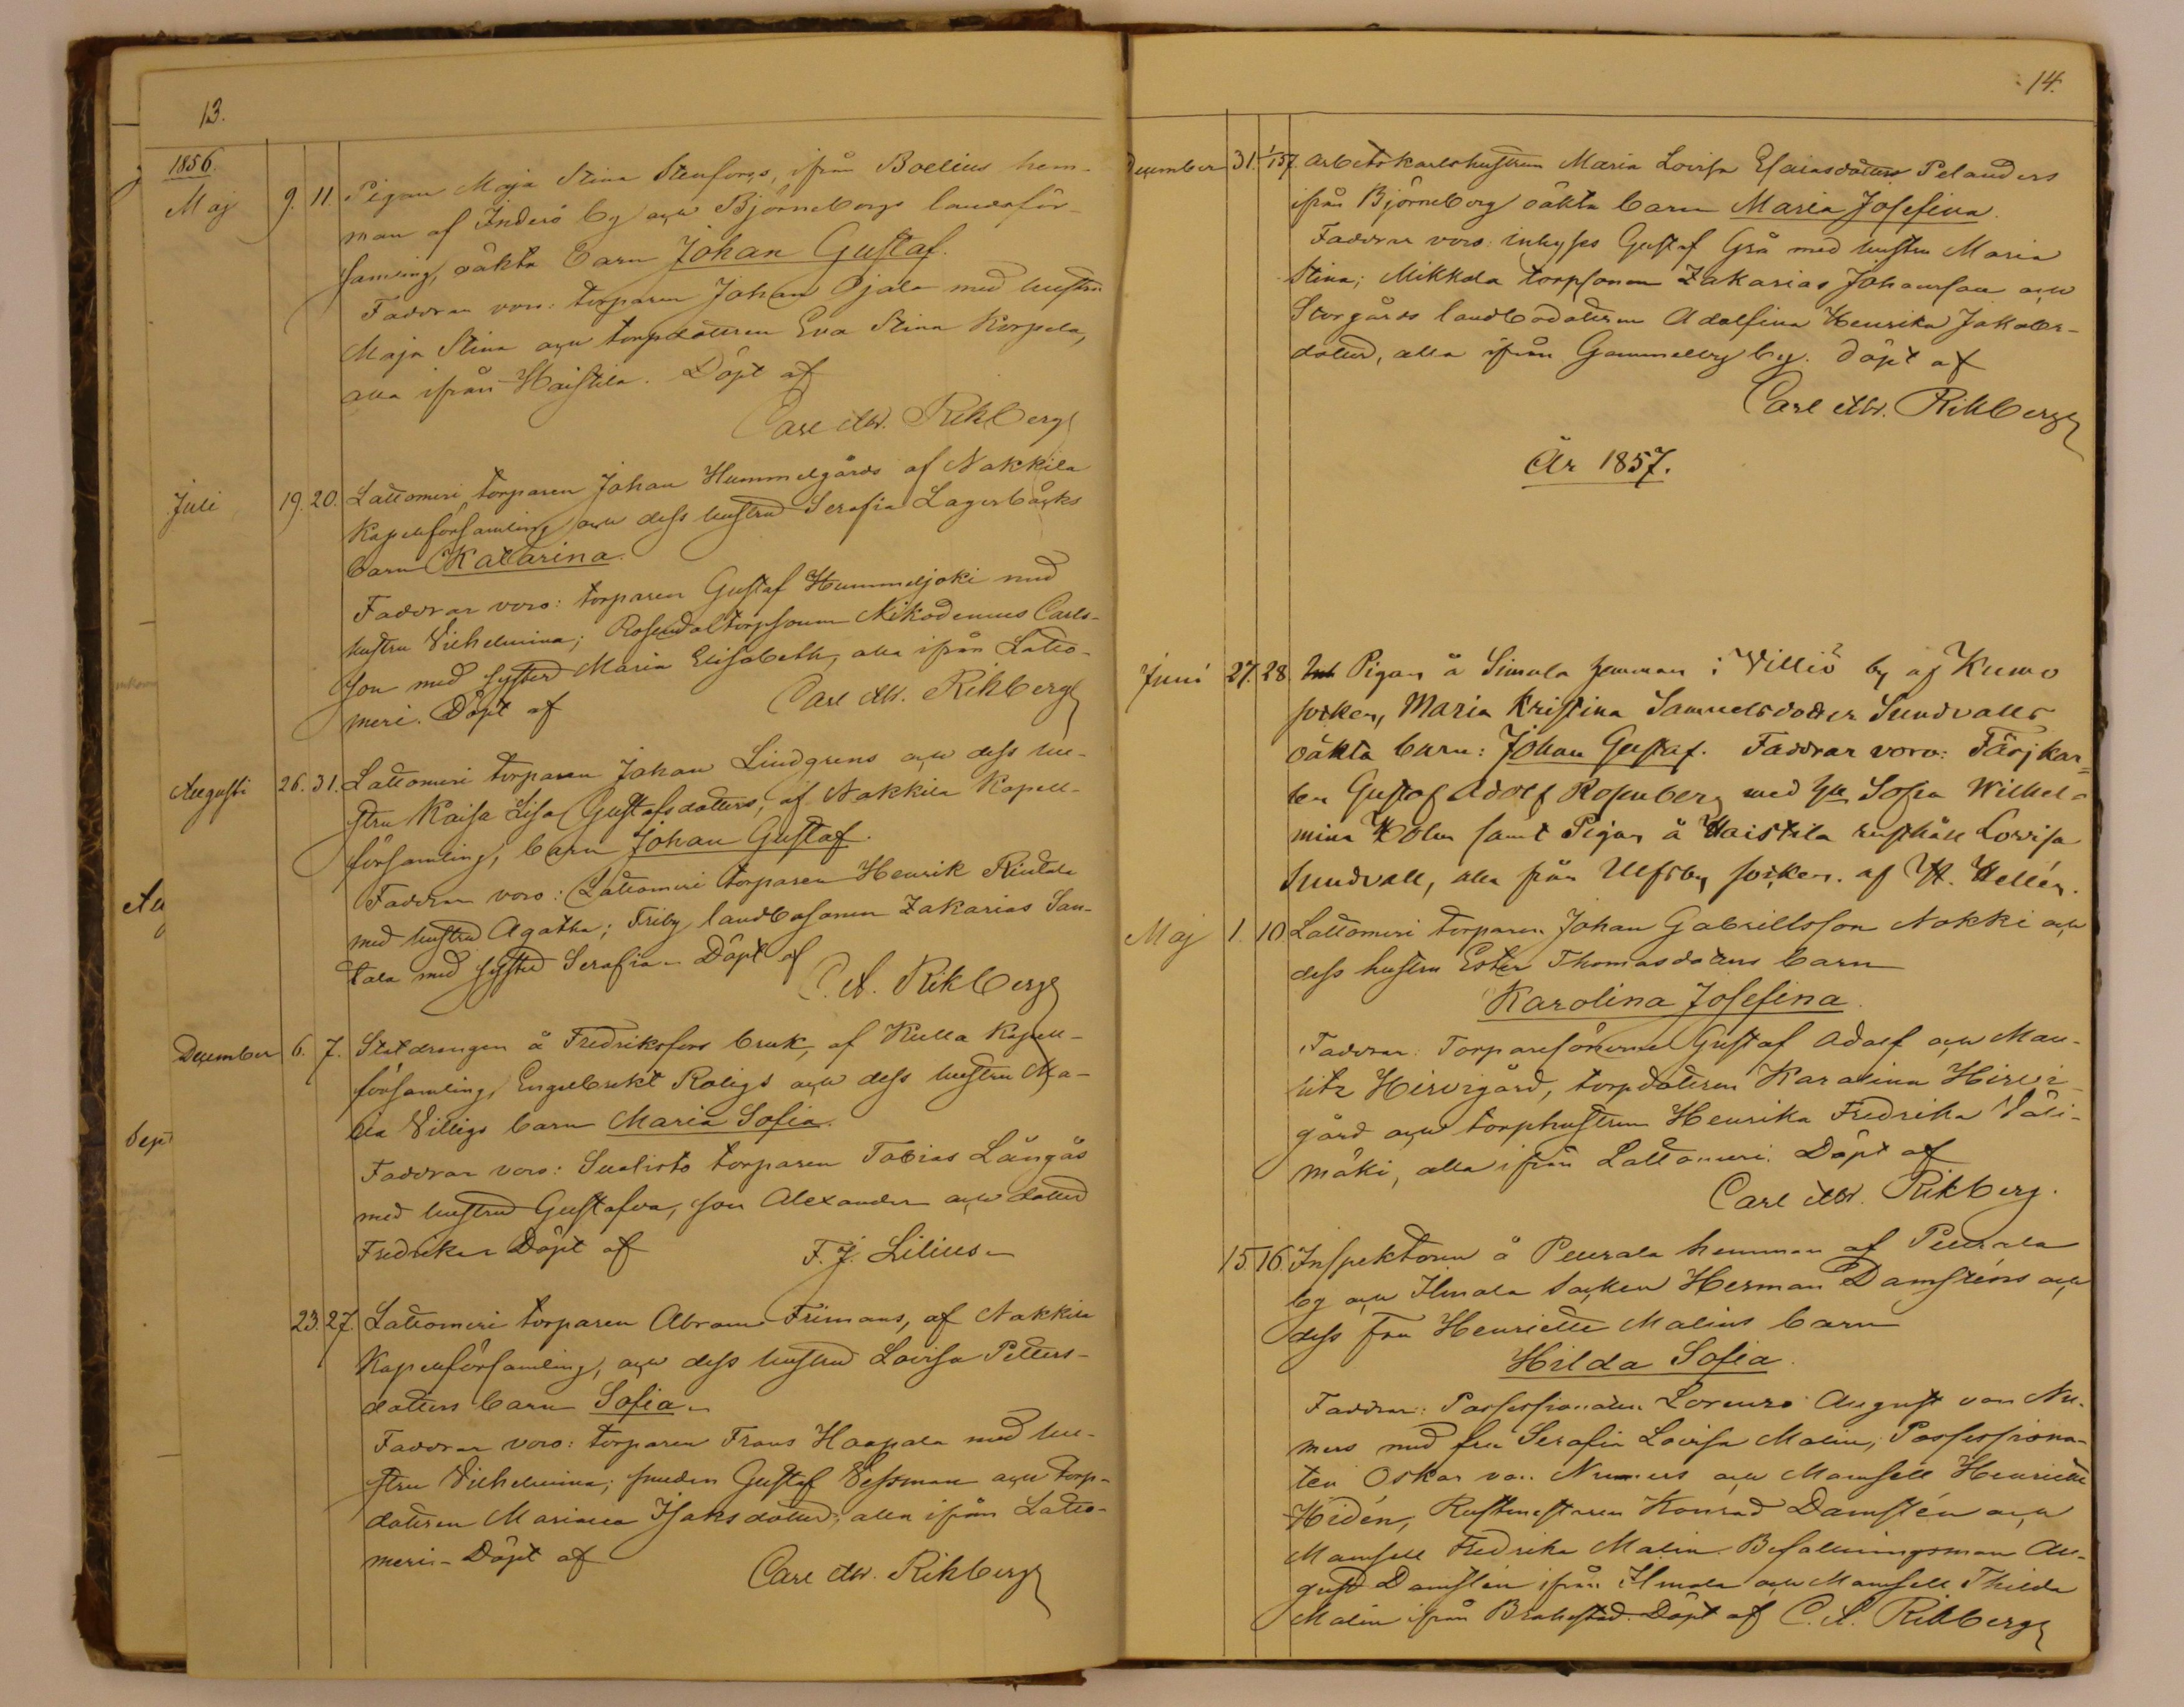 13.
1856.
Maj 9. 11. Pigan Maja Stina Stenfors, ifrån Boelius hem-
man af Inderö by och Björneborgs landsför-
samling, oäkta barn Johan Gustaf.
Faddrar voro: torparen Johan Ojala med hustru
Maja Stina och torpdottren Eva Stina Korpela,
alla ifrån Haistila. Döpt af
Carl Alb. Rikberg
Juli 19. 20. Lattomeri torparen Johan Hummelgårds af Nakkila
Kapellförsamling och dess hustru Serafia Lagerbäcks
barn Katarina.
Faddrar voro: torparen Gustaf Hummeljoki med
hustru Vilhelmina; Rosendal torpsonen Nikodemus Carls-
son med syster Maria Elisabeth, alla ifrån Latto-
meri. Döpt af Carl Alb. Rikberg
Augusti 26. 31. Lattomeri torparen Johan Lindgrens och dess hu-
stru Kaisa Lisa Gustafsdotters, af Nakkila Kapell-
församling, barn Johan Gustaf.
Faddrar voro: Lattomeri torparen Henrik Rintala
med hustru Agatha; Friby landbosonen Zakarias San-
tala med syster Serafia. Döpt af
C. A. Rikberg
December 6. 7. Statdrengen å Fredriksfors bruk, af Kulla Kapell-
församling, Engelbrekt Roligs och dess hustru Ma-
ria Villigs barn Maria Sofia.
Faddrar voro: Suolisto torparen Tobias Långås
med hustru Gustafva, son Alexander och dotter
Fredrika. Döpt af F. J. Lilius.
23. 27. Lattomeri torparen Abram Frimans, af Nakkila
Kapellförsamling, och dess hustru Lovisa Petters-
dotters barn Sofia.
Faddrar voro: torparen Frans Haapala med hu-
stru Vilhelmina; smeden Gustaf Vessman och torp-
dottren Mariana Isaksdotter, alla ifrån Latto-
meri. Döpt af Carl Alb. Rikberg
Sept
14.
December 31. 1/1 57. Arbetskarlshustrun Maria Lovisa Esaiasdotters Pelanders
ifrån Björneborg oäkta barn Maria Josefina.
Faddrar voro: inhyses Gustaf Grå med hustru Maria
Stina; Mikkola torpsonen Zakarias Johansson och
Storgårds landbodottren Adolfina Henrika Jakobs-
dotter, alla ifrån Gammelby by. Döpt af
Carl Alb. Rikberg
År 1857.
Juni 27. 28. Pigan å Simula hemman i Villiö by af Kumo
socken, Maria Kristina Samuelsdotter Sundvalls
oäkta barn: Johan Gustaf. Faddrar voro: Färjkar-
len Gustaf Adolf Rosenberg med hu Sofia Wilhel-
mina Holm samt Pigan å Haistila rusthåll Lovisa
Sundvall, alla från Ulfsby socken. af H. Hellén.
Maj 1. 10. Lattomeri torparen Johan Gabrielsson Nokki och
dess hustru Ester Thomasdotters barn
Karolina Josefina.
Faddrar: Torparesönerne Gustaf Adolf och Mau-
ritz Hirvigård, torpdottren Karolina Hirvi-
gård och torphustrun Henrika Fredrika Väli-
mäki, alla ifrån Lattomeri. Döpt af
Carl Alb. Rikberg.
15. 16. Inspektoren å Peurala hemman af Peurala
by och Ilmola socken Herman Damsténs och
dess fru Henriette Malins barn
Hilda Sofia.
Faddrar: Possessionaten Lorenzo August von Nu-
mers med fru Serafia Lovisa Malin; Possessiona-
ten Oskar von Numers och Mamsell Henriette
Hidén, Rustmästaren Konrad Damstén och
Mamsell Fredrika Malin. Befallningsman Au-
gust Damstén ifrån Ilmola och Mamsell Thilda
Malin ifrån Brahestad. Döpt af C. A. Rikberg